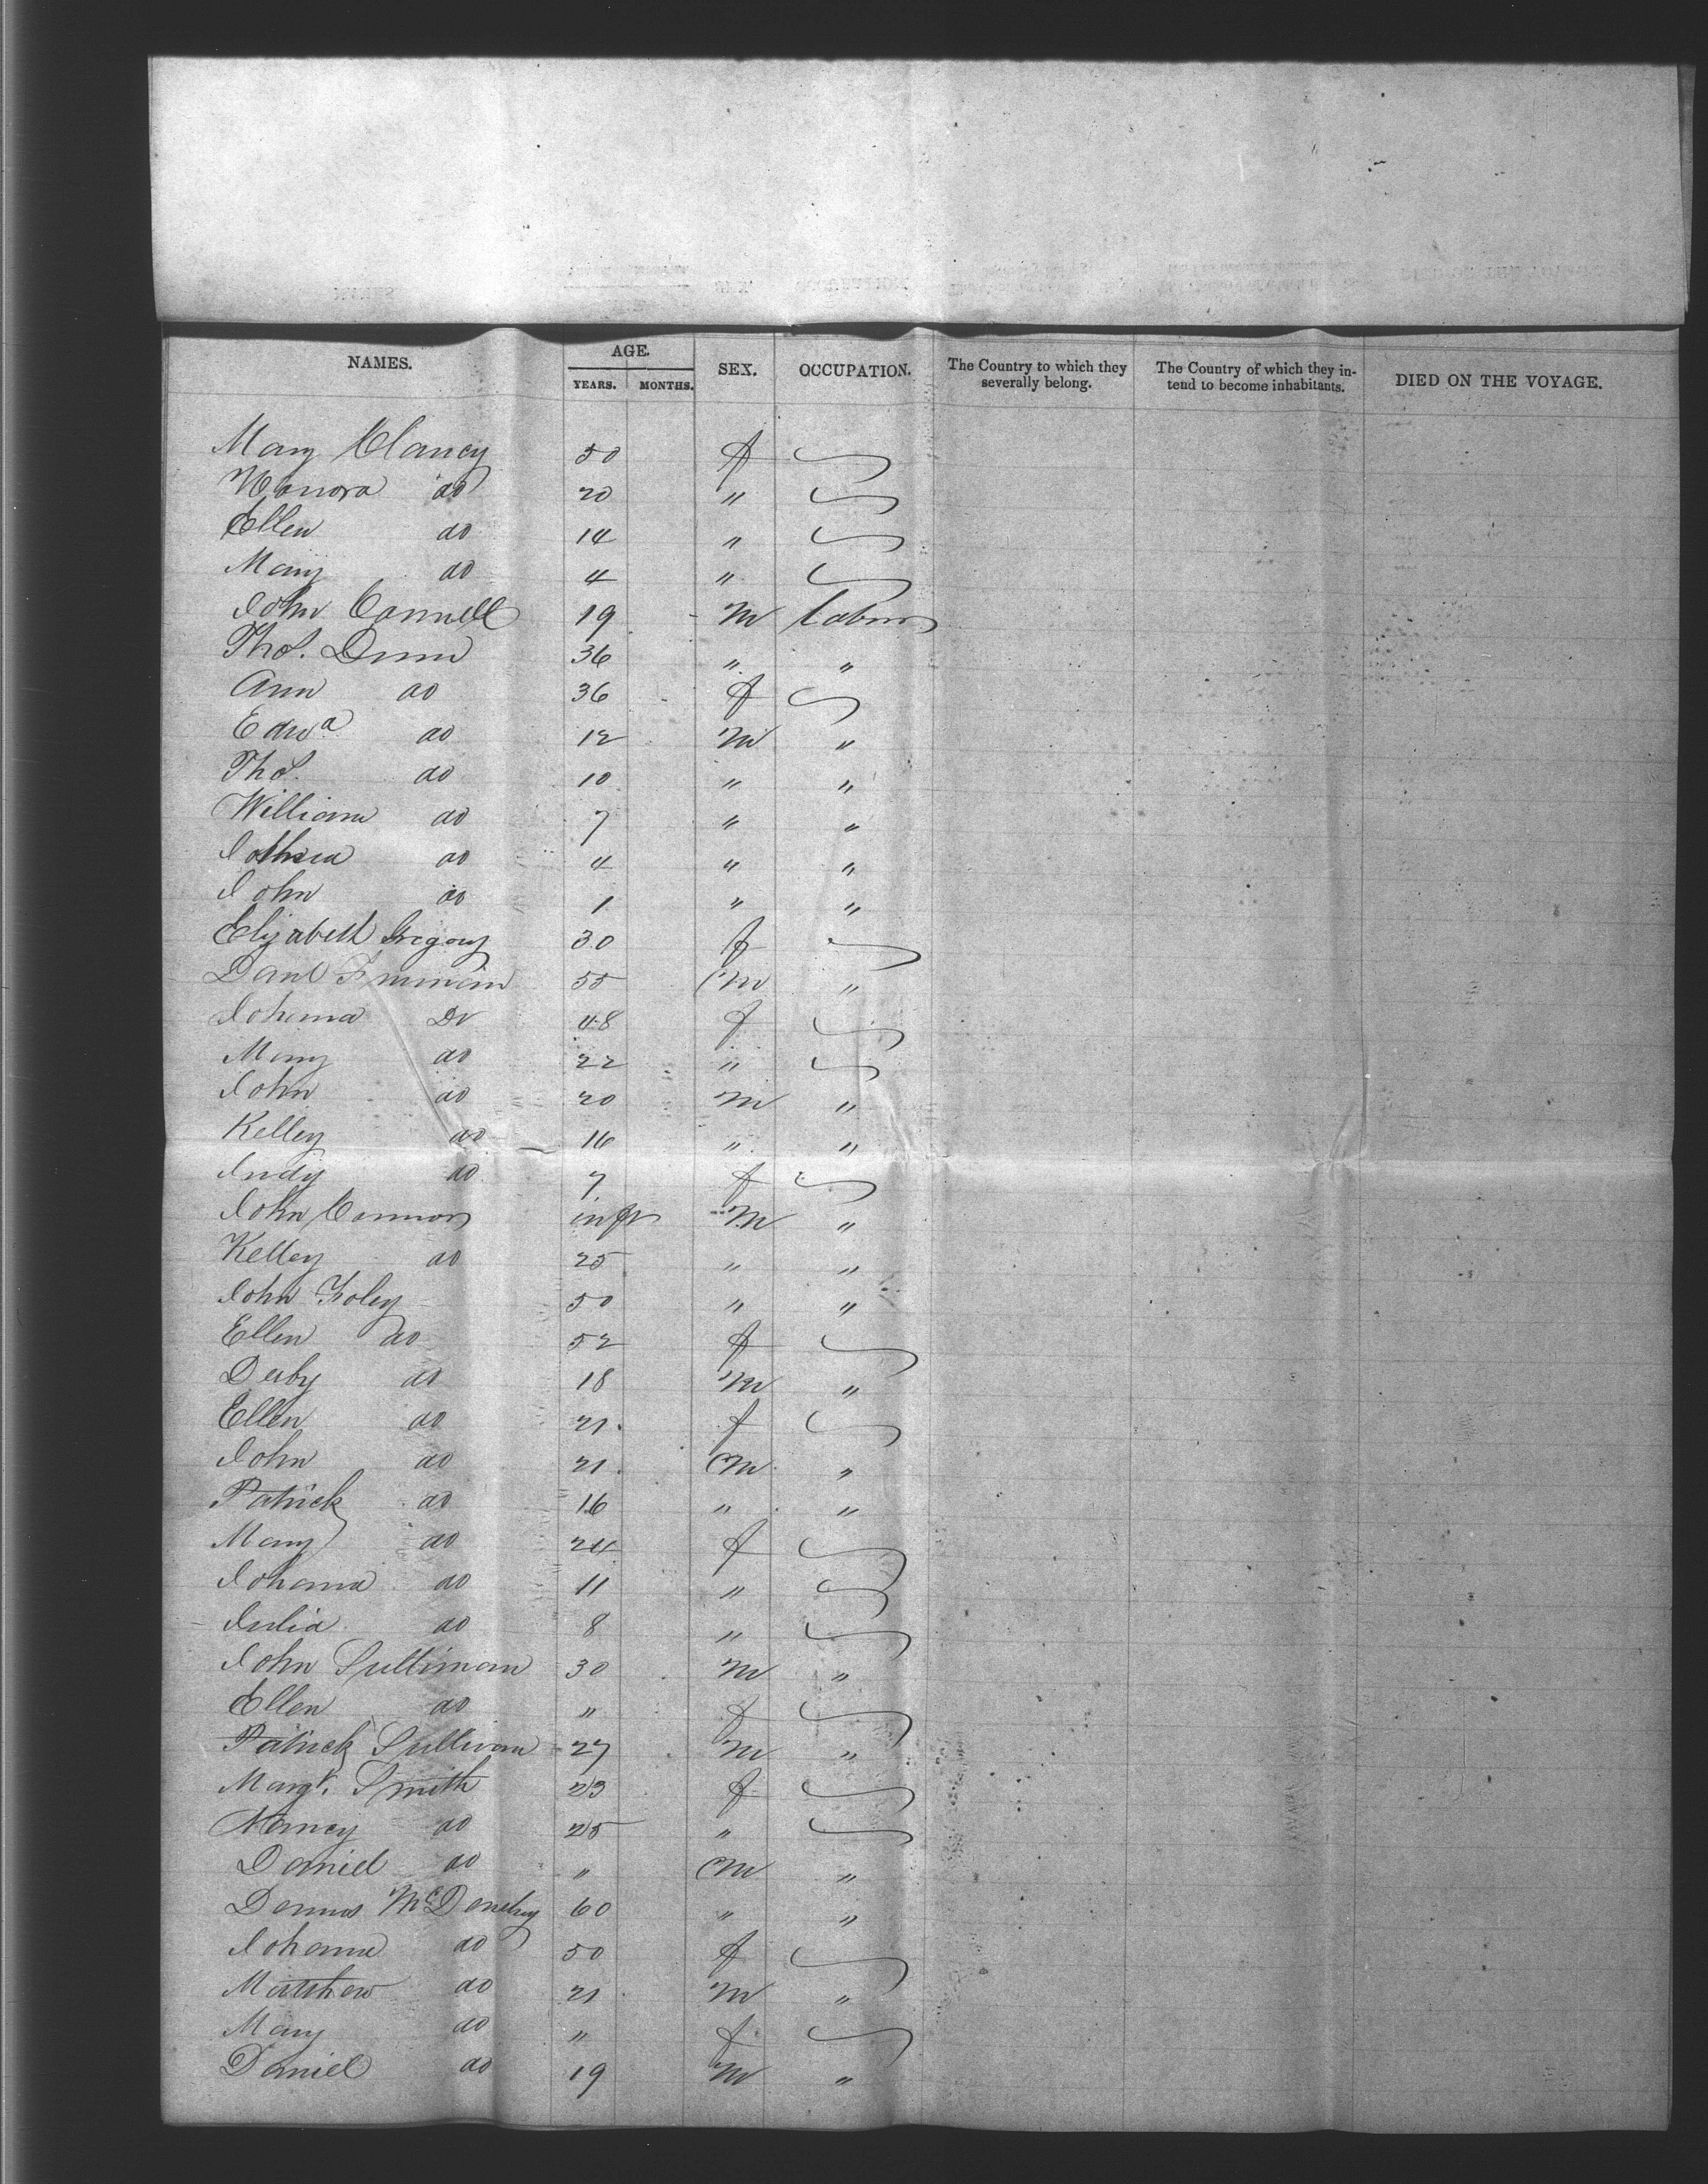 NAMES. AGE. SEX. OCCUPATION. The Country to which they severally belong. The Country of which they intend to become inhabitants. DIED ON THE VOYAGE.
YEARS. MONTHS.
Mary Clancy 50 f
Honora do 20 "
Ellen do 14 "
Mary do 4 "
John Connell 19 M Labour
Thos. Dunn 36 " "
Ann do 36 f
Edwd do 12 M "
Thos. do 10 " "
William do 7 " "
do 4 " "
John do 1 " "
Elizabeth Gregory 30 f
Danl 55 M "
Johanna Do 48 f
Mary do 22 "
John do 20 M "
Kelley do 16 " "
Judy do 7 f
John Connors inft M "
Kelley do 25 " "
John Foley 50 " "
Ellen do 52 f
Derby do 18 M "
Ellen do 21 f
John do 21 M "
Patrick do 16 " "
Mary do 24 f
Johanna do 11 "
Julia do 8 "
John Sullivan 30 M "
Ellen do " f
Patrick Sullivan 27 M "
Margt. Smith 23 f
Nancy do 25 "
Daniel do " M "
Dennis 60 " "
Johanna do 50 f
Matthew do 21 M "
Mary do " f
Daniel do 19 M "